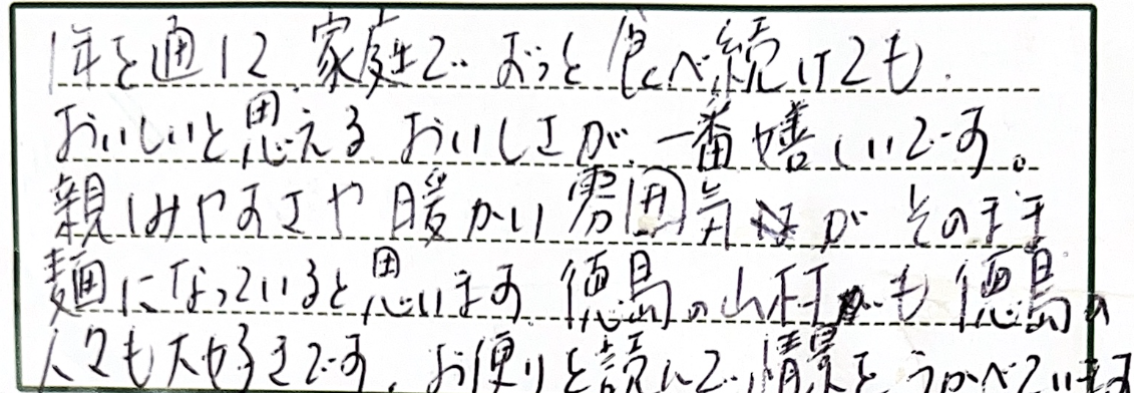 1年を通して、家庭でずっと食べ続けても、
おいしいと思えるおいしさが、一番嬉しいです。
親しみやすさや暖かい雰囲気が そのまま
麺になっていると思います。徳島の山村も 徳島の
人々も大好きです。お便りを読んで、情景をうかべています